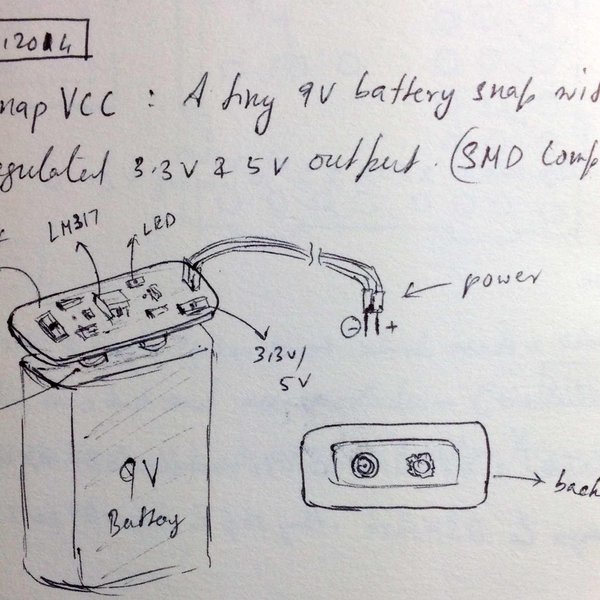 12014
nap VCC : A tiny 9V battery snap wit
egulated 3.3V & 5V output. (SMD Comp
LM317
LED
power
⊖ +
3.3V/
5V
9V
Battery
back